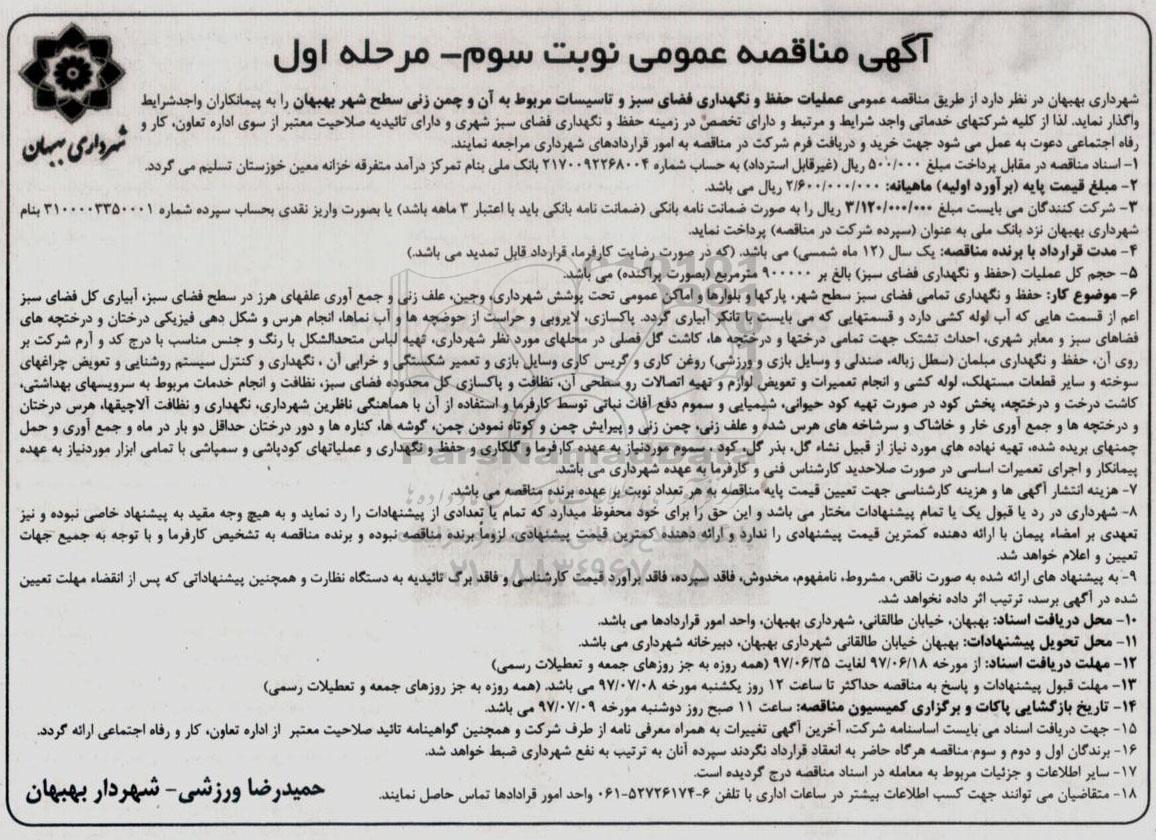 آگهی مناقصه عمومی نوبت سوم- مرحله اول
شهرداری بهبهان
شهرداری بهبهان در نظر دارد از طریق مناقصه عمومی عملیات حفظ و نگهداری فضای سبز و تاسیسات مربوط به آن و چمن زنی سطح شهر بهبهان را به پیمانکاران واجدشرایط
واگذار نماید. لذا از کلیه شرکتهای خدماتی واجد شرایط و مرتبط و دارای تخصص در زمینه حفظ و نگهداری فضای سبز شهری و دارای تائیدیه صلاحیت معتبر از سوی اداره تعاون، کار و
رفاه اجتماعی دعوت به عمل می شود جهت خرید و دریافت فرم شرکت در مناقصه به امور قراردادهای شهرداری مراجعه نمایند.
۱- اسناد مناقصه در مقابل پرداخت مبلغ ۵۰۰/۰۰۰ ریال (غیرقابل استرداد) به حساب شماره ۲۱۷۰۰۹۲۲۶۸۰۰۴ بانک ملی بنام تمرکز درآمد متفرقه خزانه معین خوزستان تسلیم می گردد.
۲- مبلغ قیمت پایه (برآورد اولیه) ماهیانه: ۲/۶۰۰/۰۰۰/۰۰۰ ریال می باشد.
۳- شرکت کنندگان می بایست مبلغ ۳/۱۲۰/۰۰۰/۰۰۰ ریال را به صورت ضمانت نامه بانکی (ضمانت نامه بانکی باید با اعتبار ۳ ماهه باشد) یا بصورت واریز نقدی بحساب سپرده شماره ۳۱۰۰۰۰۳۳۵۰۰۰۱ بنام
شهرداری بهبهان نزد بانک ملی به عنوان (سپرده شرکت در مناقصه) پرداخت نماید.
۴- مدت قرارداد با برنده مناقصه: یک سال (۱۲ ماه شمسی) می باشد. (که در صورت رضایت کارفرما، قرارداد قابل تمدید می باشد.)
۵- حجم کل عملیات (حفظ و نگهداری فضای سبز) بالغ بر ۹۰۰۰۰۰ مترمربع (بصورت پراکنده) می باشد.
۶- موضوع کار: حفظ و نگهداری تمامی فضای سبز سطح شهر، پارکها و بلوارها و اماکن عمومی تحت پوشش شهرداری، وجین، علف زنی و جمع آوری علفهای هرز در سطح فضای سبز، آبیاری کل فضای سبز
اعم از قسمت هایی که آب لوله کشی دارد و قسمتهایی که می بایست با تانکر آبیاری گردد. پاکسازی، لایروبی و حراست از حوضچه ها و آب نماها، انجام هرس و شکل دهی فیزیکی درختان و درختچه های
فضاهای سبز و معابر شهری، احداث تشتک جهت تمامی درختها و درختچه ها، کاشت گل فصلی در محلهای مورد نظر شهرداری، تهیه لباس متحدالشکل با رنگ و جنس مناسب با درج کد و آرم شرکت بر
روی آن، حفظ و نگهداری مبلمان (سطل زباله، صندلی و وسایل بازی و ورزشی) روغن کاری و گریس کاری وسایل بازی و تعمیر شکستگی و خرابی آن ، نگهداری و کنترل سیستم روشنایی و تعویض چراغهای
سوخته و سایر قطعات مستهلک، لوله کشی و انجام تعمیرات و تعویض لوازم و تهیه اتصالات رو سطحی آن، نظافت و پاکسازی کل محدوده فضای سبز، نظافت و انجام خدمات مربوط به سرویسهای بهداشتی،
کاشت درخت و درختچه، پخش کود در صورت تهیه کود حیوانی، شیمیایی و سموم دفع آفات نباتی توسط کارفرما و استفاده از آن با هماهنگی ناظرین شهرداری، نگهداری و نظافت آلاچیقها، هرس درختان
و درختچه ها و جمع آوری خار و خاشاک و سرشاخه های هرس شده و علف زنی، چمن زنی و پیرایش چمن و کوتاه نمودن چمن، گوشه ها، کناره ها و دور درختان حداقل دو بار در ماه و جمع آوری و حمل
چمنهای بریده شده، تهیه نهاده های مورد نیاز از قبیل نشاء گل، بذر گل، کود ، سموم موردنیاز به عهده کارفرما و گلکاری و حفظ و نگهداری و عملیاتهای کودپاشی و سمپاشی با تمامی ابزار موردنیاز به عهده
پیمانکار و اجرای تعمیرات اساسی در صورت صلاحدید کارشناس فنی و کارفرما به عهده شهرداری می باشد.
۷- هزینه انتشار آگهی ها و هزینه کارشناسی جهت تعیین قیمت پایه مناقصه به هر تعداد نوبت بر عهده برنده مناقصه می باشد.
۸- شهرداری در رد یا قبول یک یا تمام پیشنهادات مختار می باشد و این حق را برای خود محفوظ میدارد که تمام یا تعدادی از پیشنهادات را رد نماید و به هیچ وجه مقید به پیشنهاد خاصی نبوده و نیز
تعهدی بر امضاء پیمان با ارائه دهنده کمترین قیمت پیشنهادی را ندارد و ارائه دهنده کمترین قیمت پیشنهادی، لزوما برنده مناقصه نبوده و برنده مناقصه به تشخیص کارفرما و با توجه به جمیع جهات
تعیین و اعلام خواهد شد.
۹- به پیشنهاد های ارائه شده به صورت ناقص، مشروط، نامفهوم، مخدوش، فاقد سپرده، فاقد برآورد قیمت کارشناسی و فاقد برگ تائیدیه به دستگاه نظارت و همچنین پیشنهاداتی که پس از انقضاء مهلت تعیین
شده در آگهی برسد، ترتیب اثر داده نخواهد شد.
۱۰- محل دریافت اسناد: بهبهان، خیابان طالقانی، شهرداری بهبهان، واحد امور قراردادها می باشد.
۱۱- محل تحویل پیشنهادات: بهبهان خیابان طالقانی شهرداری بهبهان، دبیرخانه شهرداری می باشد.
۱۲- مهلت دریافت اسناد: از مورخه ۹۷/۰۶/۱۸ لغایت ۹۷/۰۶/۲۵ (همه روزه به جز روزهای جمعه و تعطیلات رسمی)
۱۳- مهلت قبول پیشنهادات و پاسخ به مناقصه حداکثر تا ساعت ۱۲ روز یکشنبه مورخه ۹۷/۰۷/۰۸ می باشد. (همه روزه به جز روزهای جمعه و تعطیلات رسمی)
۱۴- تاریخ بازگشایی پاکات و برگزاری کمیسیون مناقصه: ساعت ۱۱ صبح روز دوشنبه مورخه ۹۷/۰۷/۰۹ می باشد.
۱۵- جهت دریافت اسناد می بایست اساسنامه شرکت، آخرین آگهی تغییرات به همراه معرفی نامه از طرف شرکت و همچنین گواهینامه تائید صلاحیت معتبر از اداره تعاون، کار و رفاه اجتماعی ارائه گردد.
۱۶- برندگان اول و دوم و سوم مناقصه هرگاه حاضر به انعقاد قرارداد نگردند سپرده آنان به ترتیب به نفع شهرداری ضبط خواهد شد.
۱۷- سایر اطلاعات و جزئیات مربوط به معامله در اسناد مناقصه درج گردیده است.
۱۸- متقاضیان می توانند جهت کسب اطلاعات بیشتر در ساعات اداری با تلفن ۶-۵۲۷۲۶۱۷۴-۰۶۱ واحد امور قرادادها تماس حاصل نمایند.
حمیدرضا ورزشی- شهردار بهبهان
ParsNamadData
۰۲۱-۸۸۳۴۹۶۷۰-۵